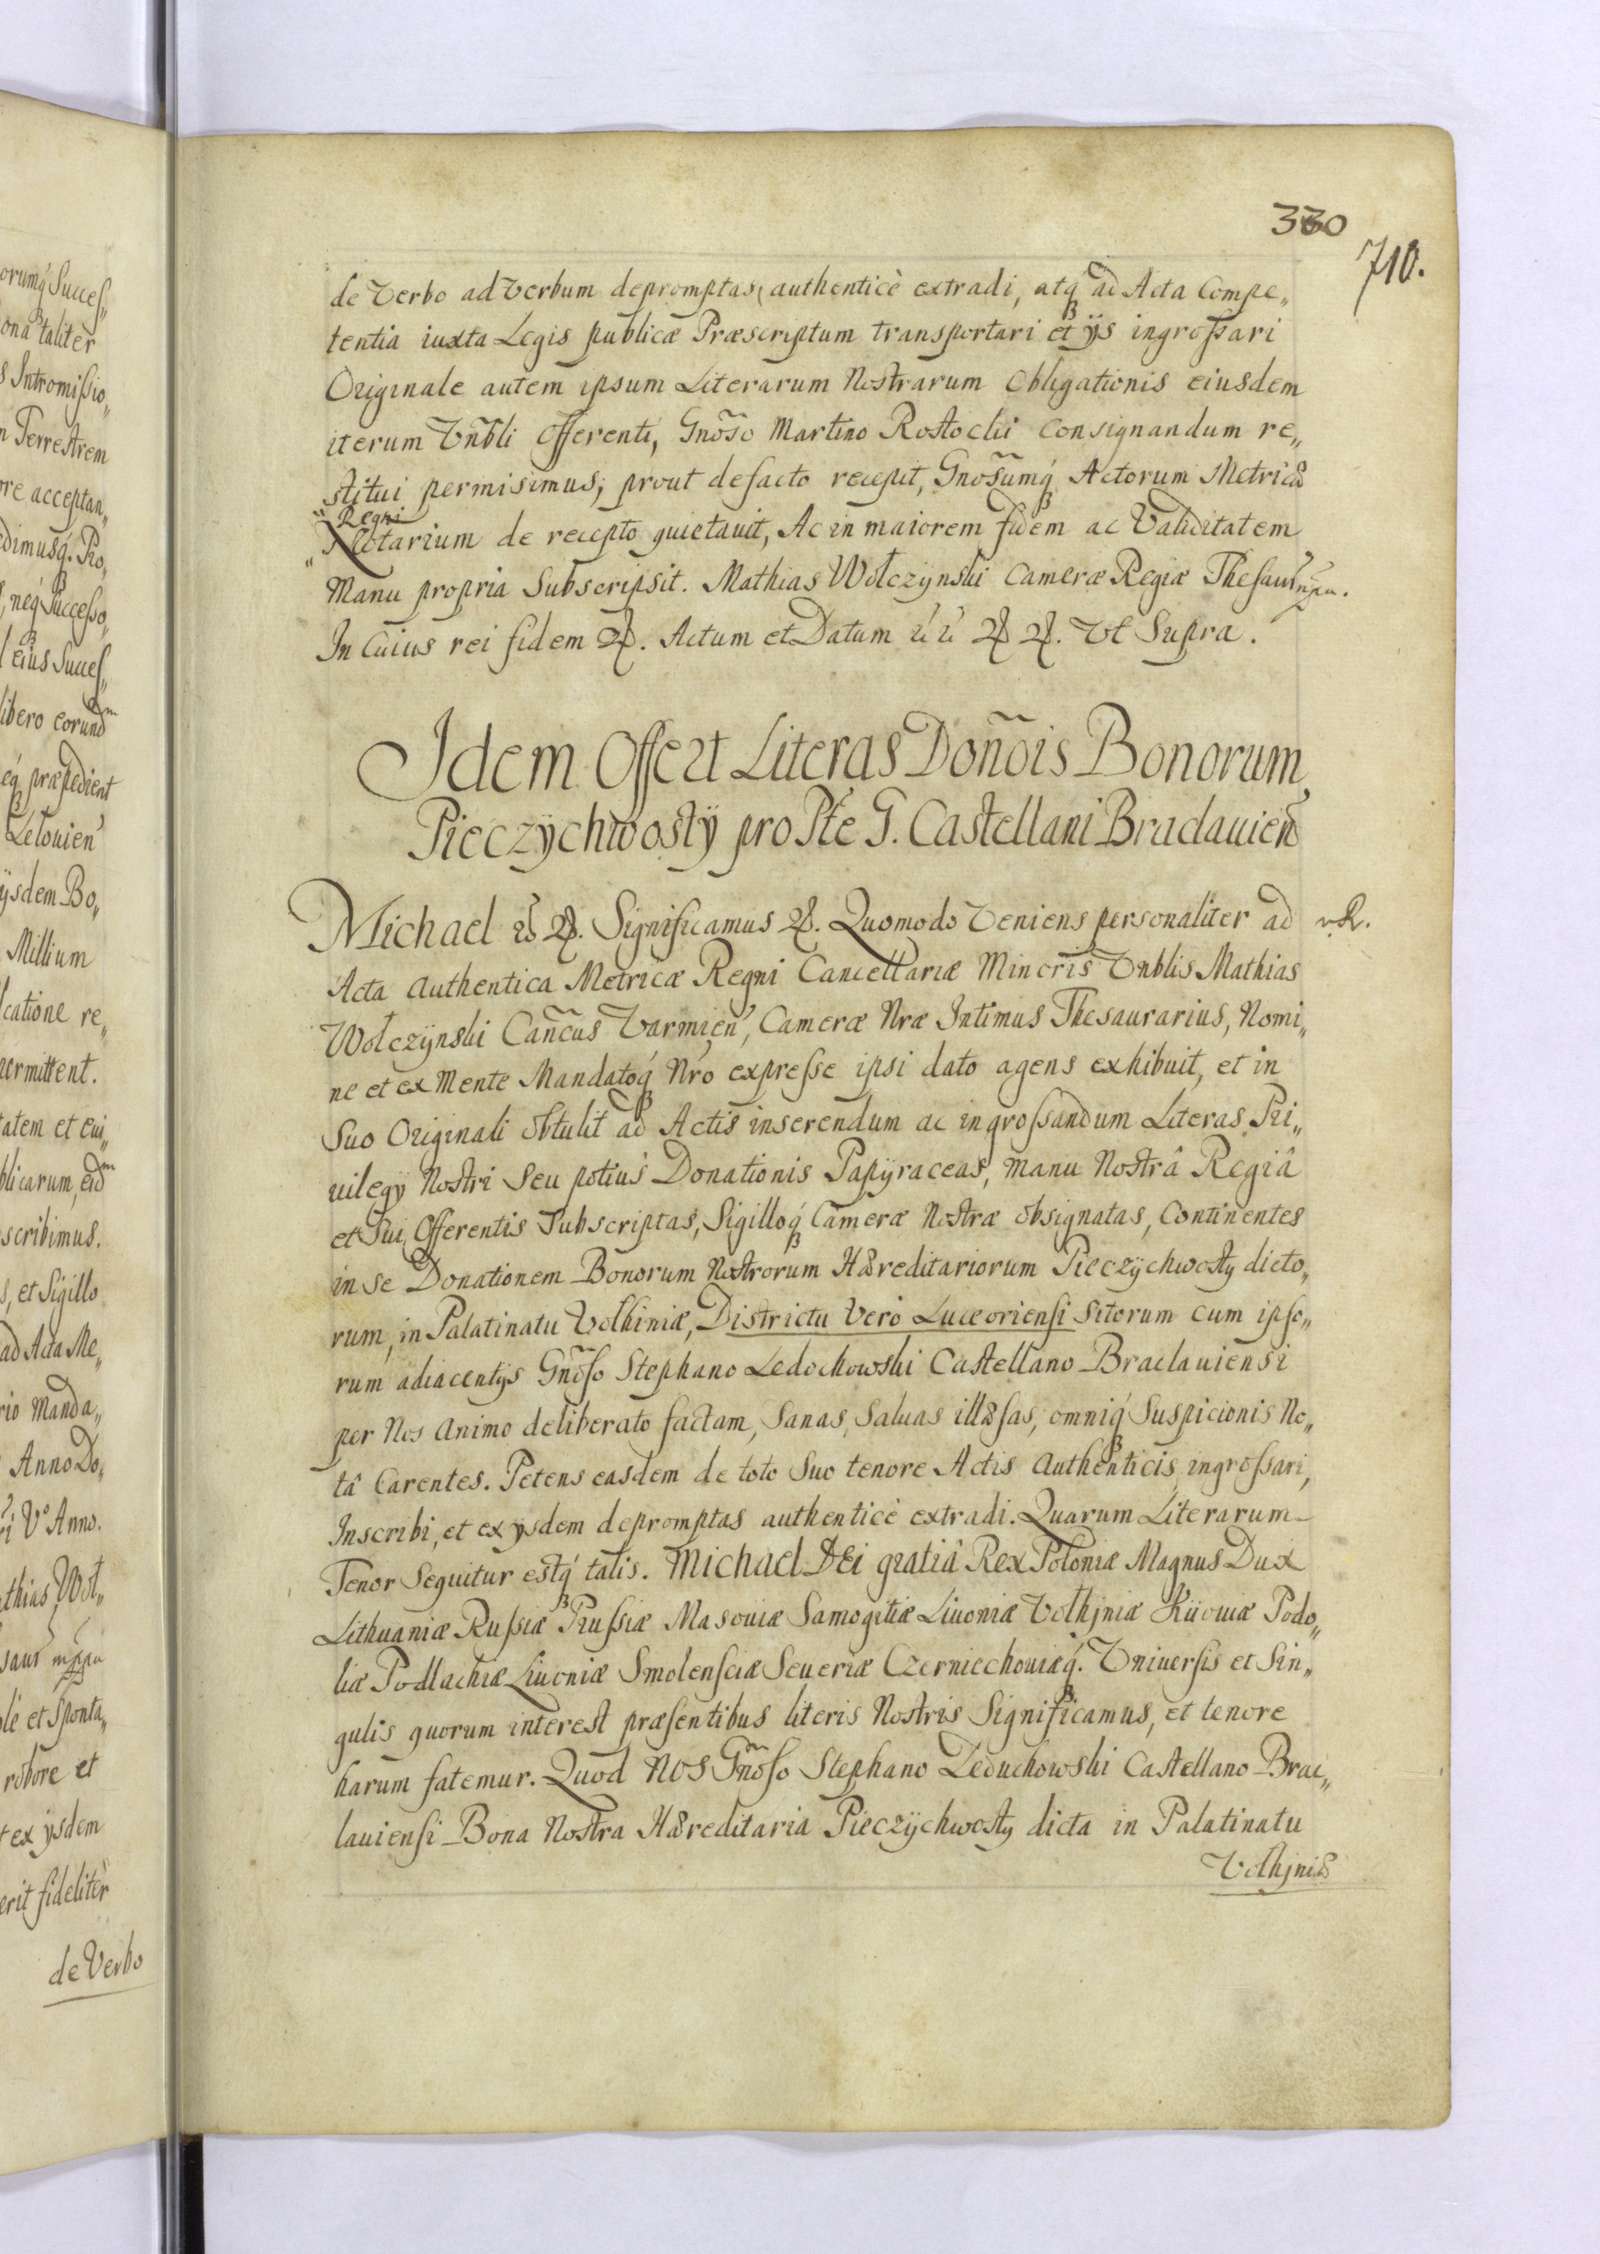 330
710.
de Verbo ad Verbum depromptas, authenticè extradi, atq́ ad Acta Compe„
tentia iuxta Legis publicæ Præscriptum transportari et ÿs ingrossari
Originale autem ipsum Literarum Nostrarum Obligationis eiusdem
iterum Vnbli Offerenti, Gnõso Martino Rostochi Consignandum re„
stitui permisimus, prout defacto recepit, Gnosumq́ Actorum Metricæ
Regni
Notarium de recepto quietauit, Ac in maiorem fidem ac Validitatem
Manu propria Subscripsit. Mathias Wolczynski Cameræ Regiæ Thesaur mpa.
In Cuius rei fidem &. Actum et Datum ut ut & &. Vt Supra.
Idem Offert Literas Donõis Bonorum
Pieczÿchwostÿ pro Pte G. Castellani Braclauien
Michael & &. Significamus &. Quomodo Veniens personaliter ad
Acta authentica Metricæ Regni Cancellariæ Minoris Vnblis Mathias
Wolczÿnski Cañcus Varmien, Cameræ Nræ Intimus Thesaurarius, Nomi„
ne et ex Mente Mandatoq́ Nro expresse ipsi dato agens exhibuit, et in
Suo Originali obtulit ad Actis inserendum ac ingrossandum Literas Pri„
uilegÿ Nostri Seu potius Donationis Papÿraceas, Manu Nostrâ Regiâ
et Sui Offerentis Subscriptas, Sigilloq́ Cameræ Nostræ obsignatas, Continentes
in se Donationem Bonorum Nostrorum Hæreditariorum Pieczÿchwosty dicto„
rum, in Palatinatu Volhiniæ, Districtu Vero Luceoriensi Sitorum cum ipso„
rum adiacentÿs Gnõso Stephano Ledochowski Castellano Braclauiensi
per Nos Animo deliberato factam, Sanas, Saluas illæsas, omniq́ Suspicionis No„
tâ Carentes. Petens easdem de toto Suo tenore Actis Authenticis ingrossari,
Inscribi, et ex ÿsdem depromptas authenticè extradi. Quarum Literarum
Tenor Sequitur estq́ talis. Michael DEi gratiâ Rex Poloniæ Magnus Dux
Lithuaniæ Russiæ Prussiæ Masouiæ Samogitiæ Liuoniæ Volhÿniæ Kÿouiæ Podo„
liæ Podlachiæ Liuoniæ Smolensciæ Seueriæ Czerniechouiæq́. Vniuersis et Sin„
gulis quorum interest præsentibus literis Nostris Significamus, et tenore
harum fatemur. Quod NOS Gñoso Stephano Leduchowski Castellano Brac„
lauiensi Bona Nostra Hæreditaria Pieczÿchwosty dicta in Palatinatu
Volhjniæ
orumq́ Succes„
ona taliter
s Intromissio„
n Terrestrem
ore acceptan„
edimusq́. Pro„
, neq́ Successo„
l eius Succes„
libero eorundm
eq́ præpedient
Letouien
ÿsdem Bo„
Millium
catione re„
permittent.
tatem et eui„
blicarum, eidm
scribimus.
s, et Sigillo
ad Acta Me„
rio Manda„
Anno Do„
ri Vo Anno.
athias Wol„
saur mppa
lè et Sponta„
robore et
t ex ÿsdem
erit fideliter
de Verbo